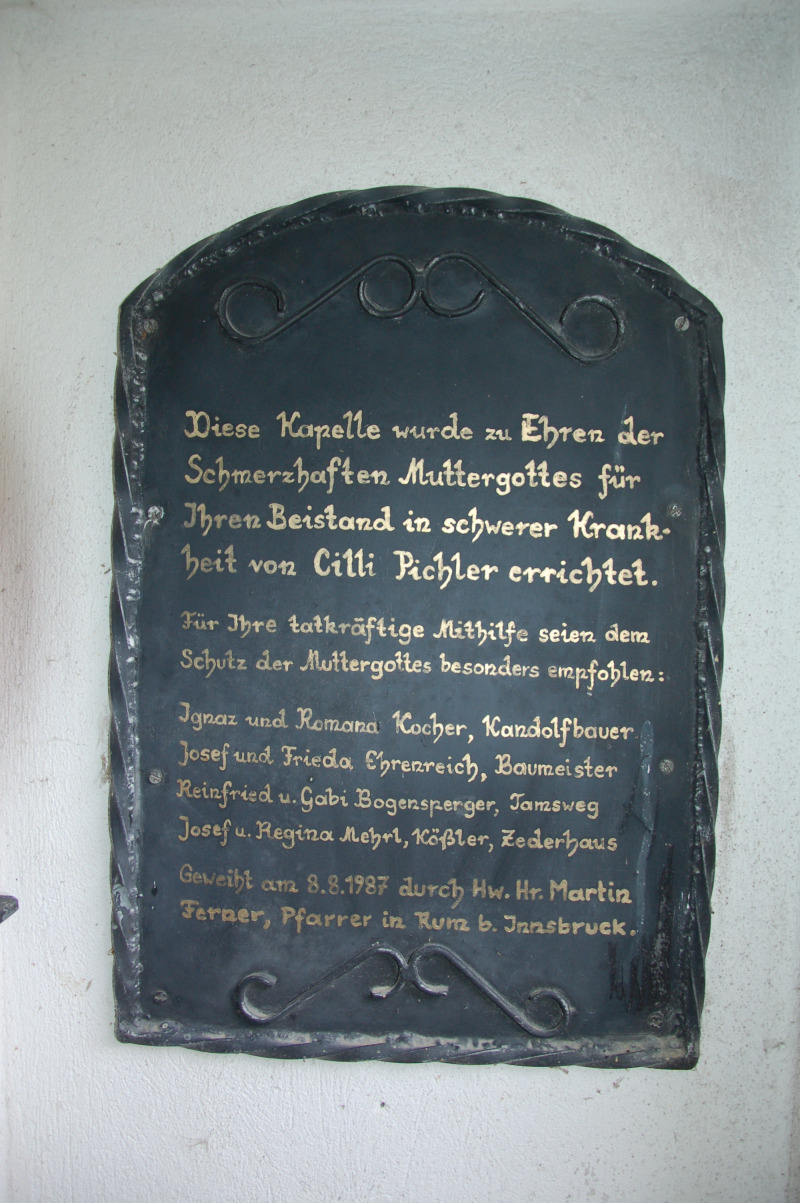 Diese Kapelle wurde zu Ehren der
Schmerzhaften Muttergottes für
Ihren Beistand in schwerer Krank-
heit von Cilli Pichler errichtet.
Für Ihre tatkräftige Mithilfe seien dem
Schutz der Muttergottes besonders empfohlen:
Ignaz und Romana Kocher, Kandolfbauer
Josef und Frieda Ehrenreich, Baumeister
Reinfried u. Gabi Bogensperger, Tamsweg
Josef u. Regina Mehrl, Kößler, Zederhaus
Geweiht am 8.8.1987 durch Hw. Hr. Martin
Ferner, Pfarrer in Rum b. Innsbruck.